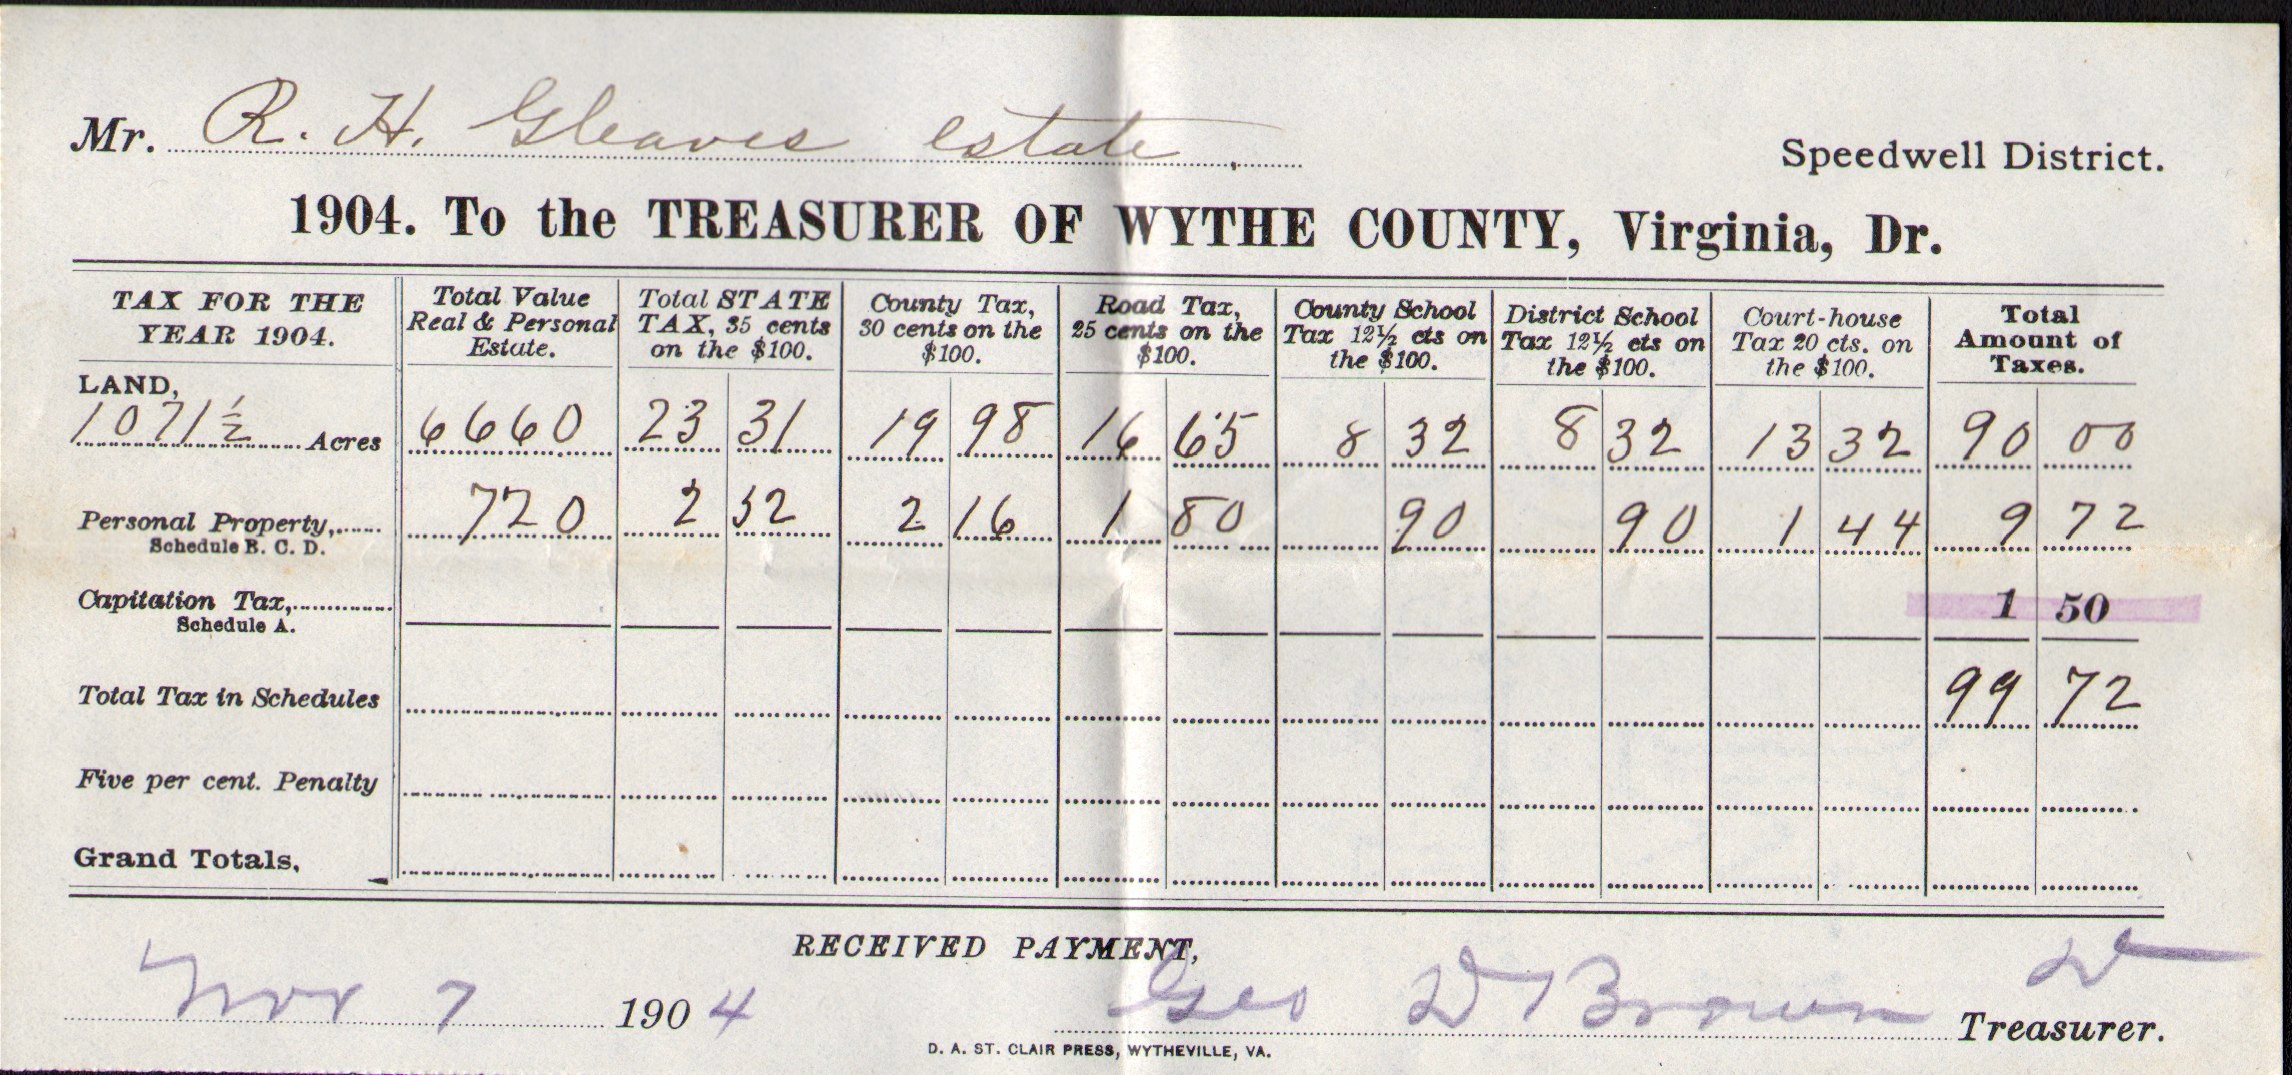 Mr. R. H. Gleaves estate,
Speedwell District.
1904. To the TREASURER OF WYTHE COUNTY, Virginia, Dr.
TAX FOR THE YEAR 1904. Total Value Real & Personal Estate. Total STATE TAX, 35 cents on the $100. County Tax, 30 cents on the $100. Road Tax, 25 cents on the $100. County School Tax 12½ cts on the $100. District School Tax 12½ cts on the $100. Court-house Tax 20 cts. on the $100. Total Amount of Taxes.
LAND,
1071½ Acres 6660 23 31 19 98 16 65 8 32 8 32 13 32 90 00
Personal Property, 720 2 52 2 16 1 80 90 90 1 44 9 72
Schedule B. C. D.
Capitation Tax, 1 50
Schedule A.
Total Tax in Schedules 99 72
Five per cent. Penalty
Grand Totals,
RECEIVED PAYMENT,
Nov 7 1904 Geo W Brown Treasurer.
D. A. ST. CLAIR PRESS, WYTHEVILLE, VA.